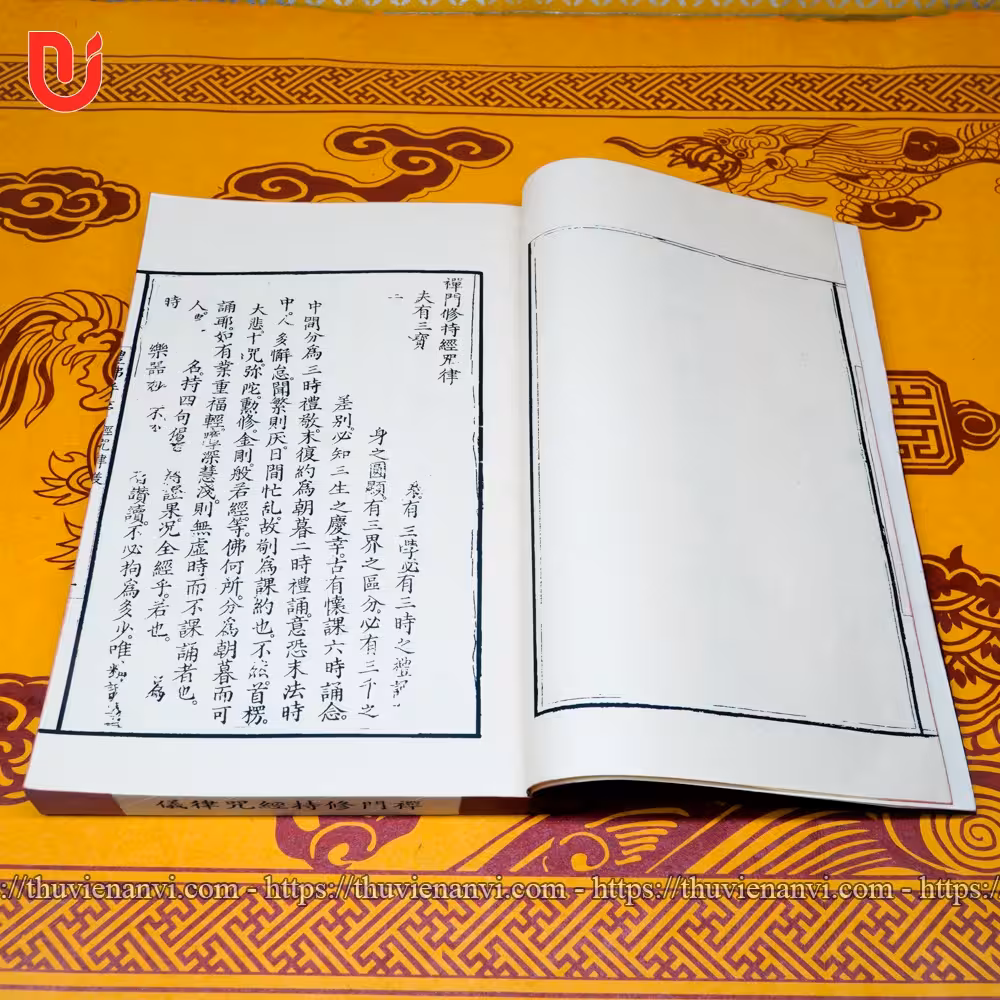 禪門修持經咒律
夫有三寶
有三學必有三時之禮
身之圓顯。有三界之區分。必有三千之
差別。必知三生之慶幸。古有懷課六時誦念。
中間分為三時禮敬。末復約為朝暮二時禮誦。意恐末法時
中。人多懈怠。聞繁則厌。日間忙乱。故剏為課約也。不然。首楞。
大悲十咒。弥陀。懃修。金剛般若經等。佛何所。分為朝暮而可
誦耶。如有業重福輕。障深慧淺。則無虛時而不課誦者也。
人 名。持四句偈 證果。況全經乎。若也。 為
時 樂器 不 讚讀。不必拘為多少。唯
經咒律
禪門修持經咒律儀
://thuvienanvi.com - https://thuvienanvi.com - https://thuvienanvi.com - https://